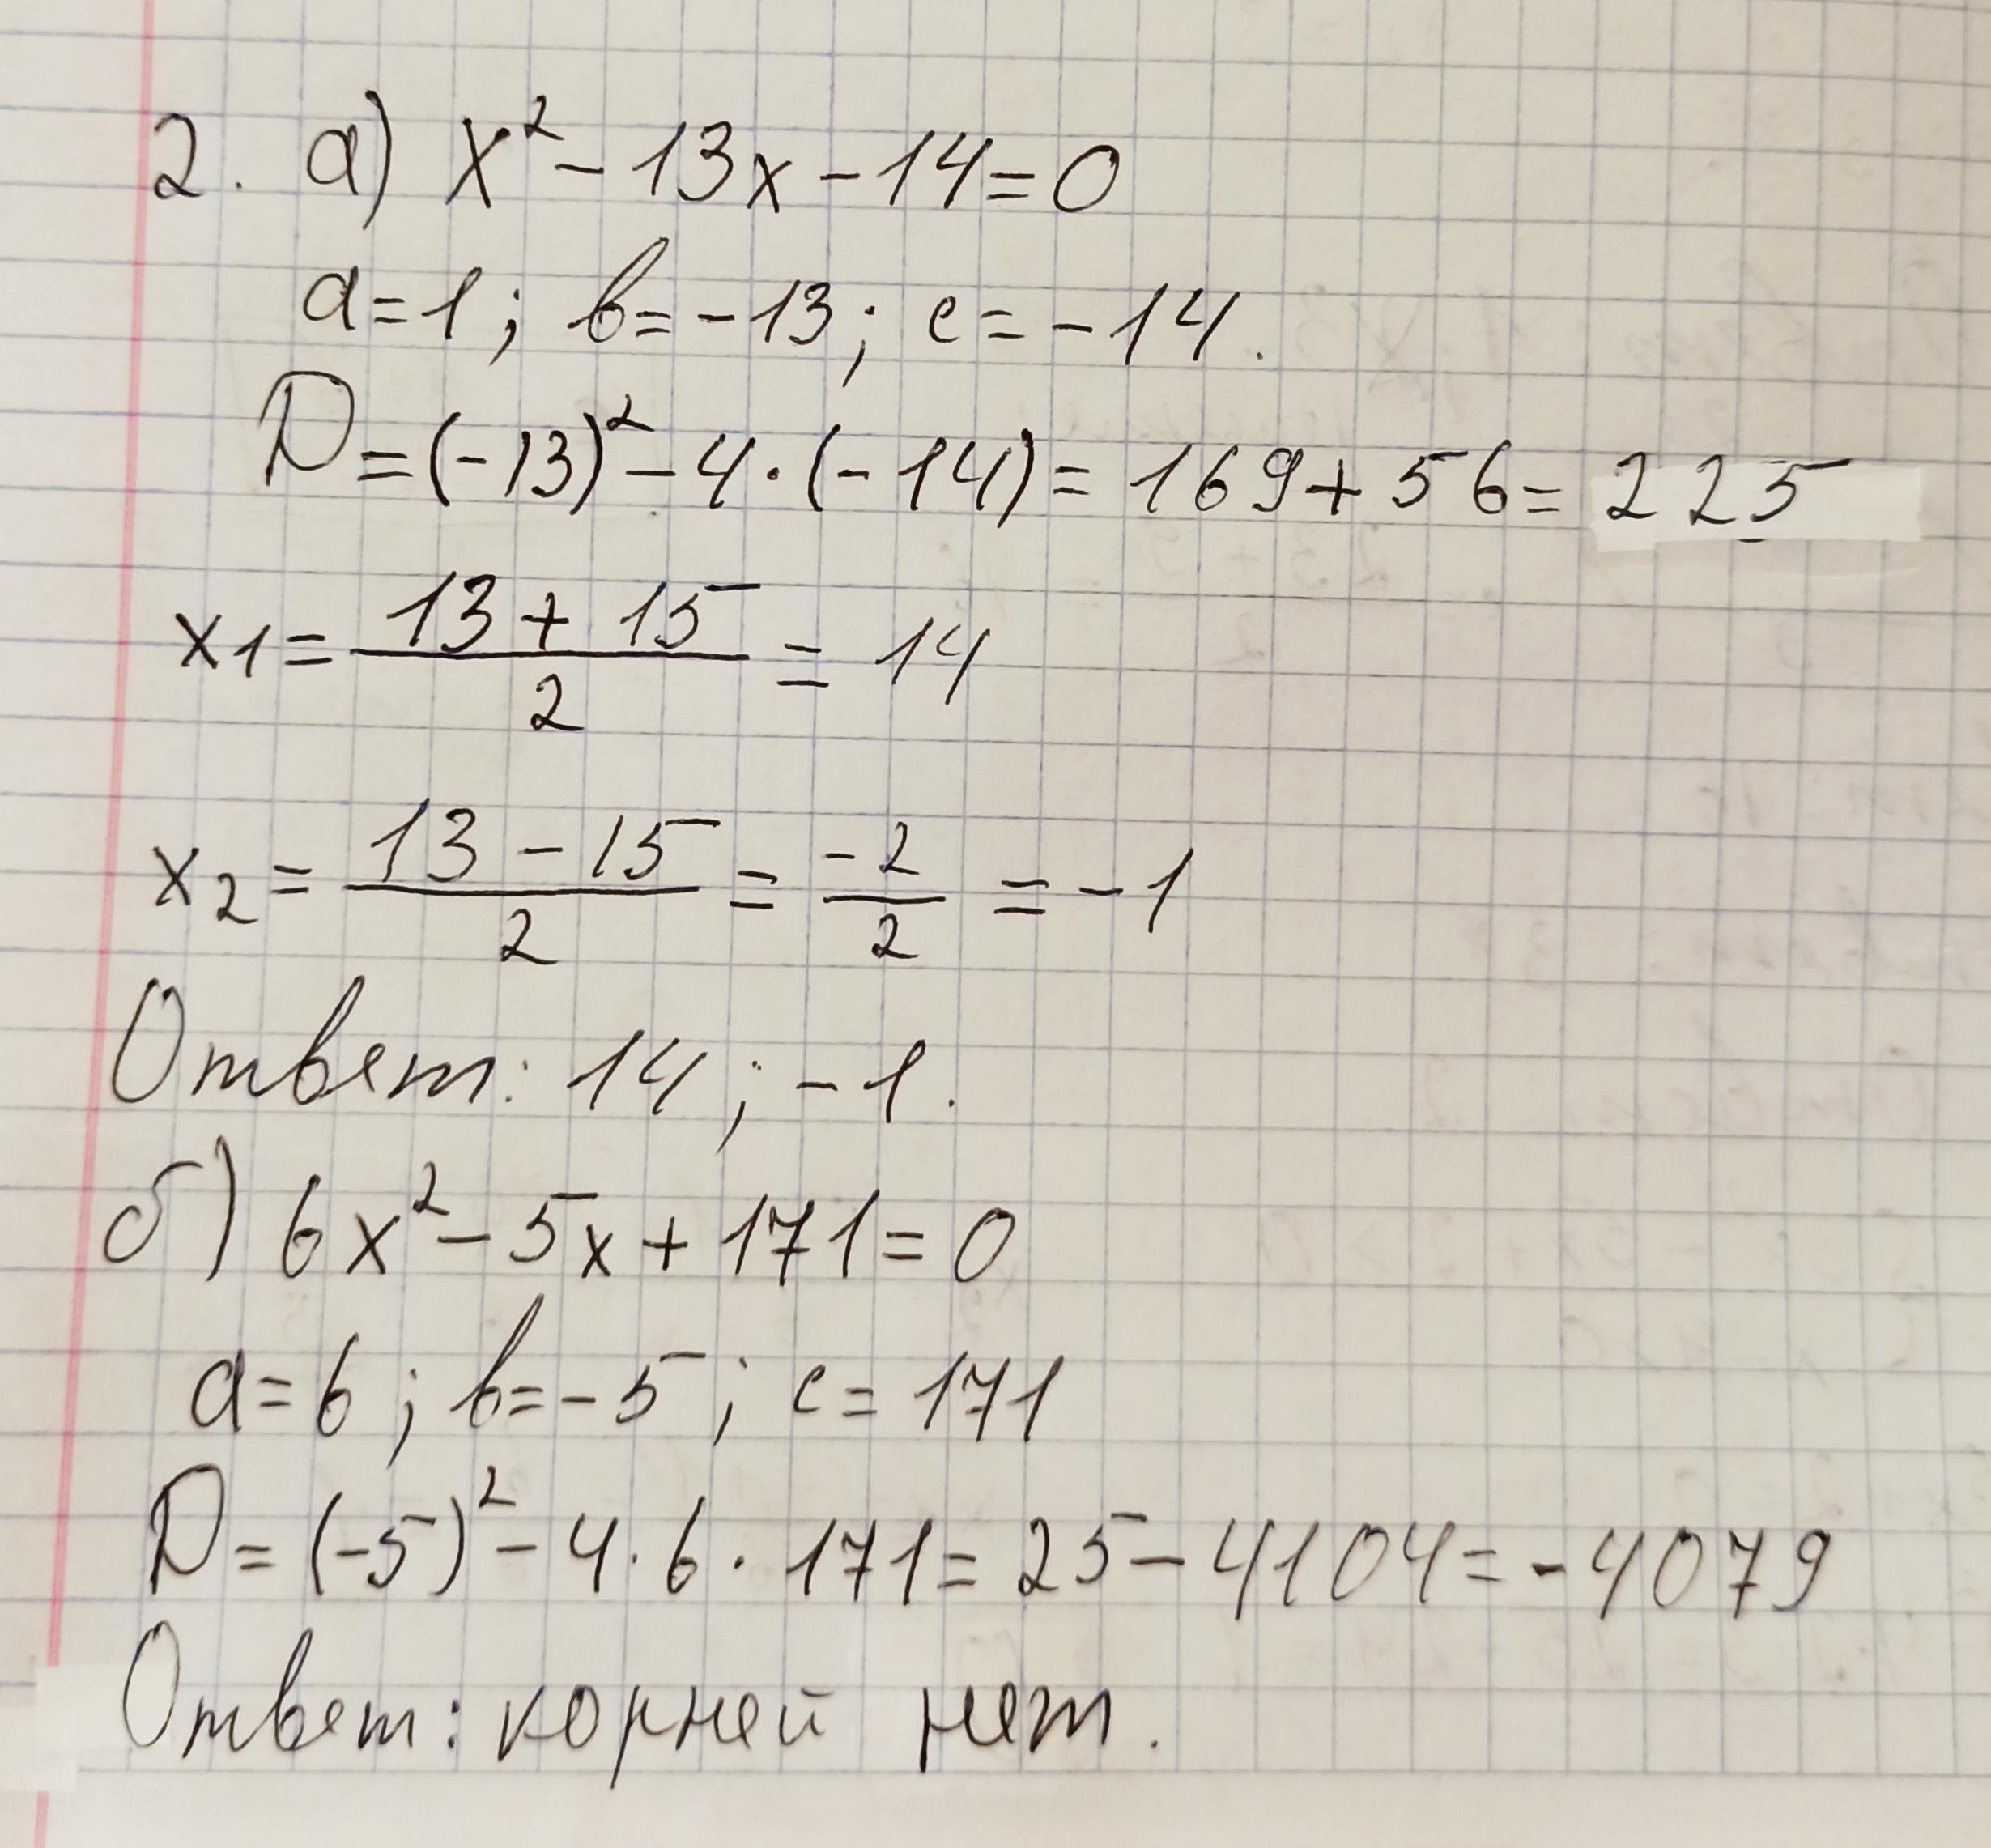 2. а) x² - 13x - 14 = 0
a = 1; b = -13; c = -14.
D = (-13)² - 4 · (-14) = 169 + 56 = 225
x1 = (13 + 15)/2 = 14
x2 = (13 - 15)/2 = -2/2 = -1
Ответ: 14; -1.
б) 6x² - 5x + 171 = 0
a = 6; b = -5; c = 171
D = (-5)² - 4 · 6 · 171 = 25 - 4104 = -4079
Ответ: корней нет.